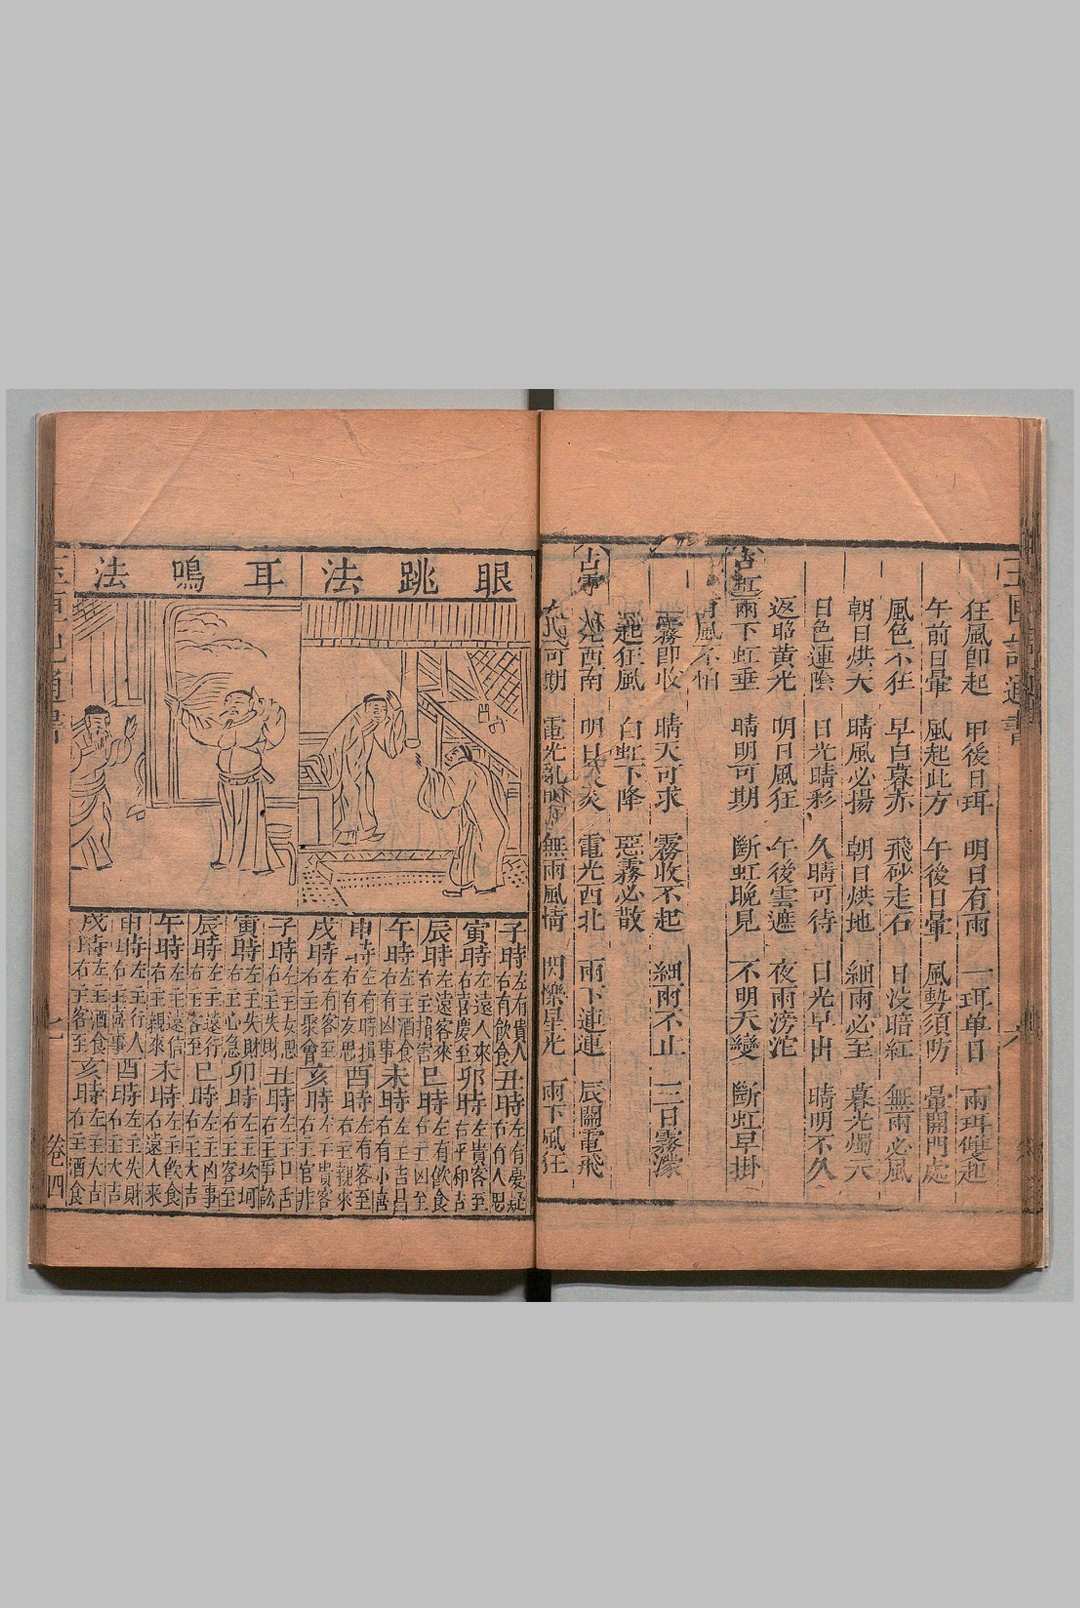 玉匣記通書
狂風即起 甲後日珥 明日有雨 一珥單日 兩珥雙起
午前日暈 風起此方 午後日暈 風勢須防 暈開門處
風色不狂 早白暮赤 飛砂走石 日没暗紅 無雨必風
朝日烘天 晴風必揚 朝日烘地 細雨必至 暮光燭天
日色連陰 日光晴彩 久晴可待 日光早出 晴明不久
返照黄光 明日風狂 午後雲遮 夜雨滂沱
占虹 雨下虹垂 晴明可期 斷虹晚見 不明天變 斷虹早掛
有風不怕
霧即收 晴天可求 霧收不起 細雨不止 三日霧濛
起狂風 白虹下降 惡霧必散
占電 秋 西南 明日炎炎 電光西北 雨下連連 辰闕電飛
可期 電光亂明 無雨風情 閃爍星光 雨下風狂
眼跳法
子時左有貴人右有飲食丑時左有憂疑右有人思
寅時左遠人來右喜慶至卯時左貴客至右平和吉
辰時左遠客來右主損害巳時左有飲食右主凶至
午時左主酒食右有凶事未時左主吉昌右有小喜
申時左有時損右有亥思酉時左有客至右主親來
戌時左有客至右主聚會亥時左主貴客右主官非
耳鳴法
子時左主女思右主失財丑時左主口舌右主爭訟
寅時左主失財右主心急卯時左主坎坷右主客至
辰時左主遠行右主客至巳時左主凶事右主大吉
午時左主遠信右主親來未時左主飲食右遠人來
申時左主行人右主喜事酉時左主失財右主大吉
戌時左主酒食右主客至亥時左主大吉右主酒食
卷四